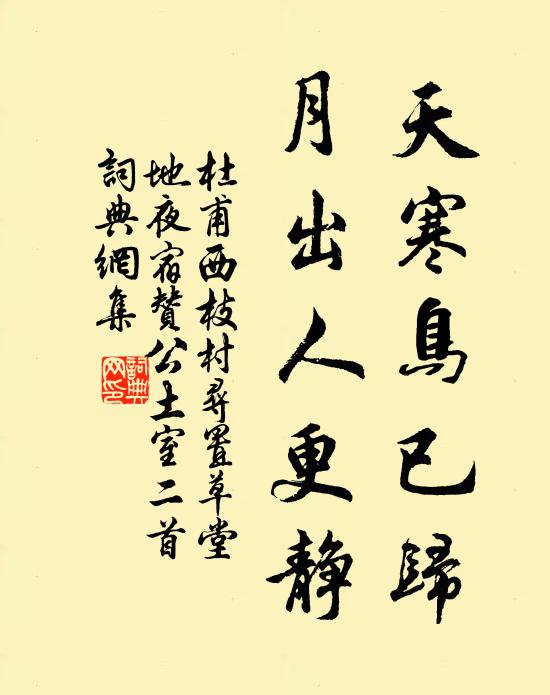 天寒鳥已歸
月出人更静
杜甫西枝村尋置草堂
地夜宿贊公土室二首
詞典網集
詞典
网印